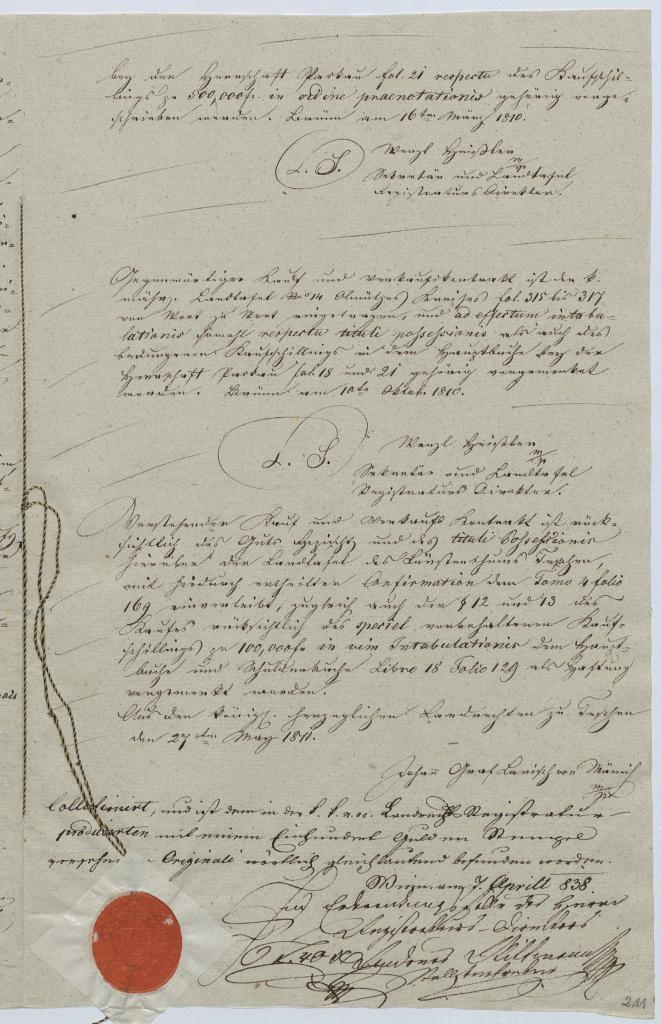 bey der Herrschaft Paskau fol. 21 respectu des Kaufschil-
lings pr 500,000fr. in ordine praenotationis gehörig vorge-
schrieben worden. Brünn am 16ten März 1810.
L. S.
Wenzl Heißler
mp
Sekretär und Landtafel
Registraturs Direktor.
Gegenwärtiger Kauf und Verkaufskontrakt ist der k.
mähr. Landtafel Nro 14 Olmützer Kreises fol. 315 bis 317
von Wort zu Wort eingetragen, und ad effectum intabu-
lationis sowohl respectu tituli possessionis als auch des
bedungenen Kaufschillings in dem Hauptbuche bey der
Herrschaft Paskau fol. 18 und 21 gehörig vorgemerket
worden. Brünn am 10ten Oktob. 1810.
L. S.
Wenzl Heißler
mp
Sekretär und Landtafel
Registraturs Direktor.
Vorstehender Kauf und Verkaufs Kontrakt ist rück-
sichtlich des Guts und des tituli Possessionis
hierüber der Landtafel des Fürstenthums Teschen,
mit hiedurch ertheilter Confirmation dem Tomo 4 folio
169 einverleibt, zugleich auch der § 12 und 13 des
Kaufes rücksichtlich des speciel vorbehaltenen Kauf-
schillings pr 100,000fr in vim Intabulationis dem Haupt-
buche und Schuldenbuche Libro 18 Folio 129 als Haftung
vorgemerkt worden.
Aus den königl. herzoglichen Landrechten zu Teschen
den 27ten May 1811.
Johann Graf Larisch von Mönich
mp
Collationirt, und ist dem in der k. k. n. oe. Landrechts Registratur
producirten mit einem Einhundert Gulden Stempel
versehenen Originali wörtlich gleichlautend befunden worden.
Wien am 7. Aprill 838.
In des Herrn
Registraturs-Directors
211